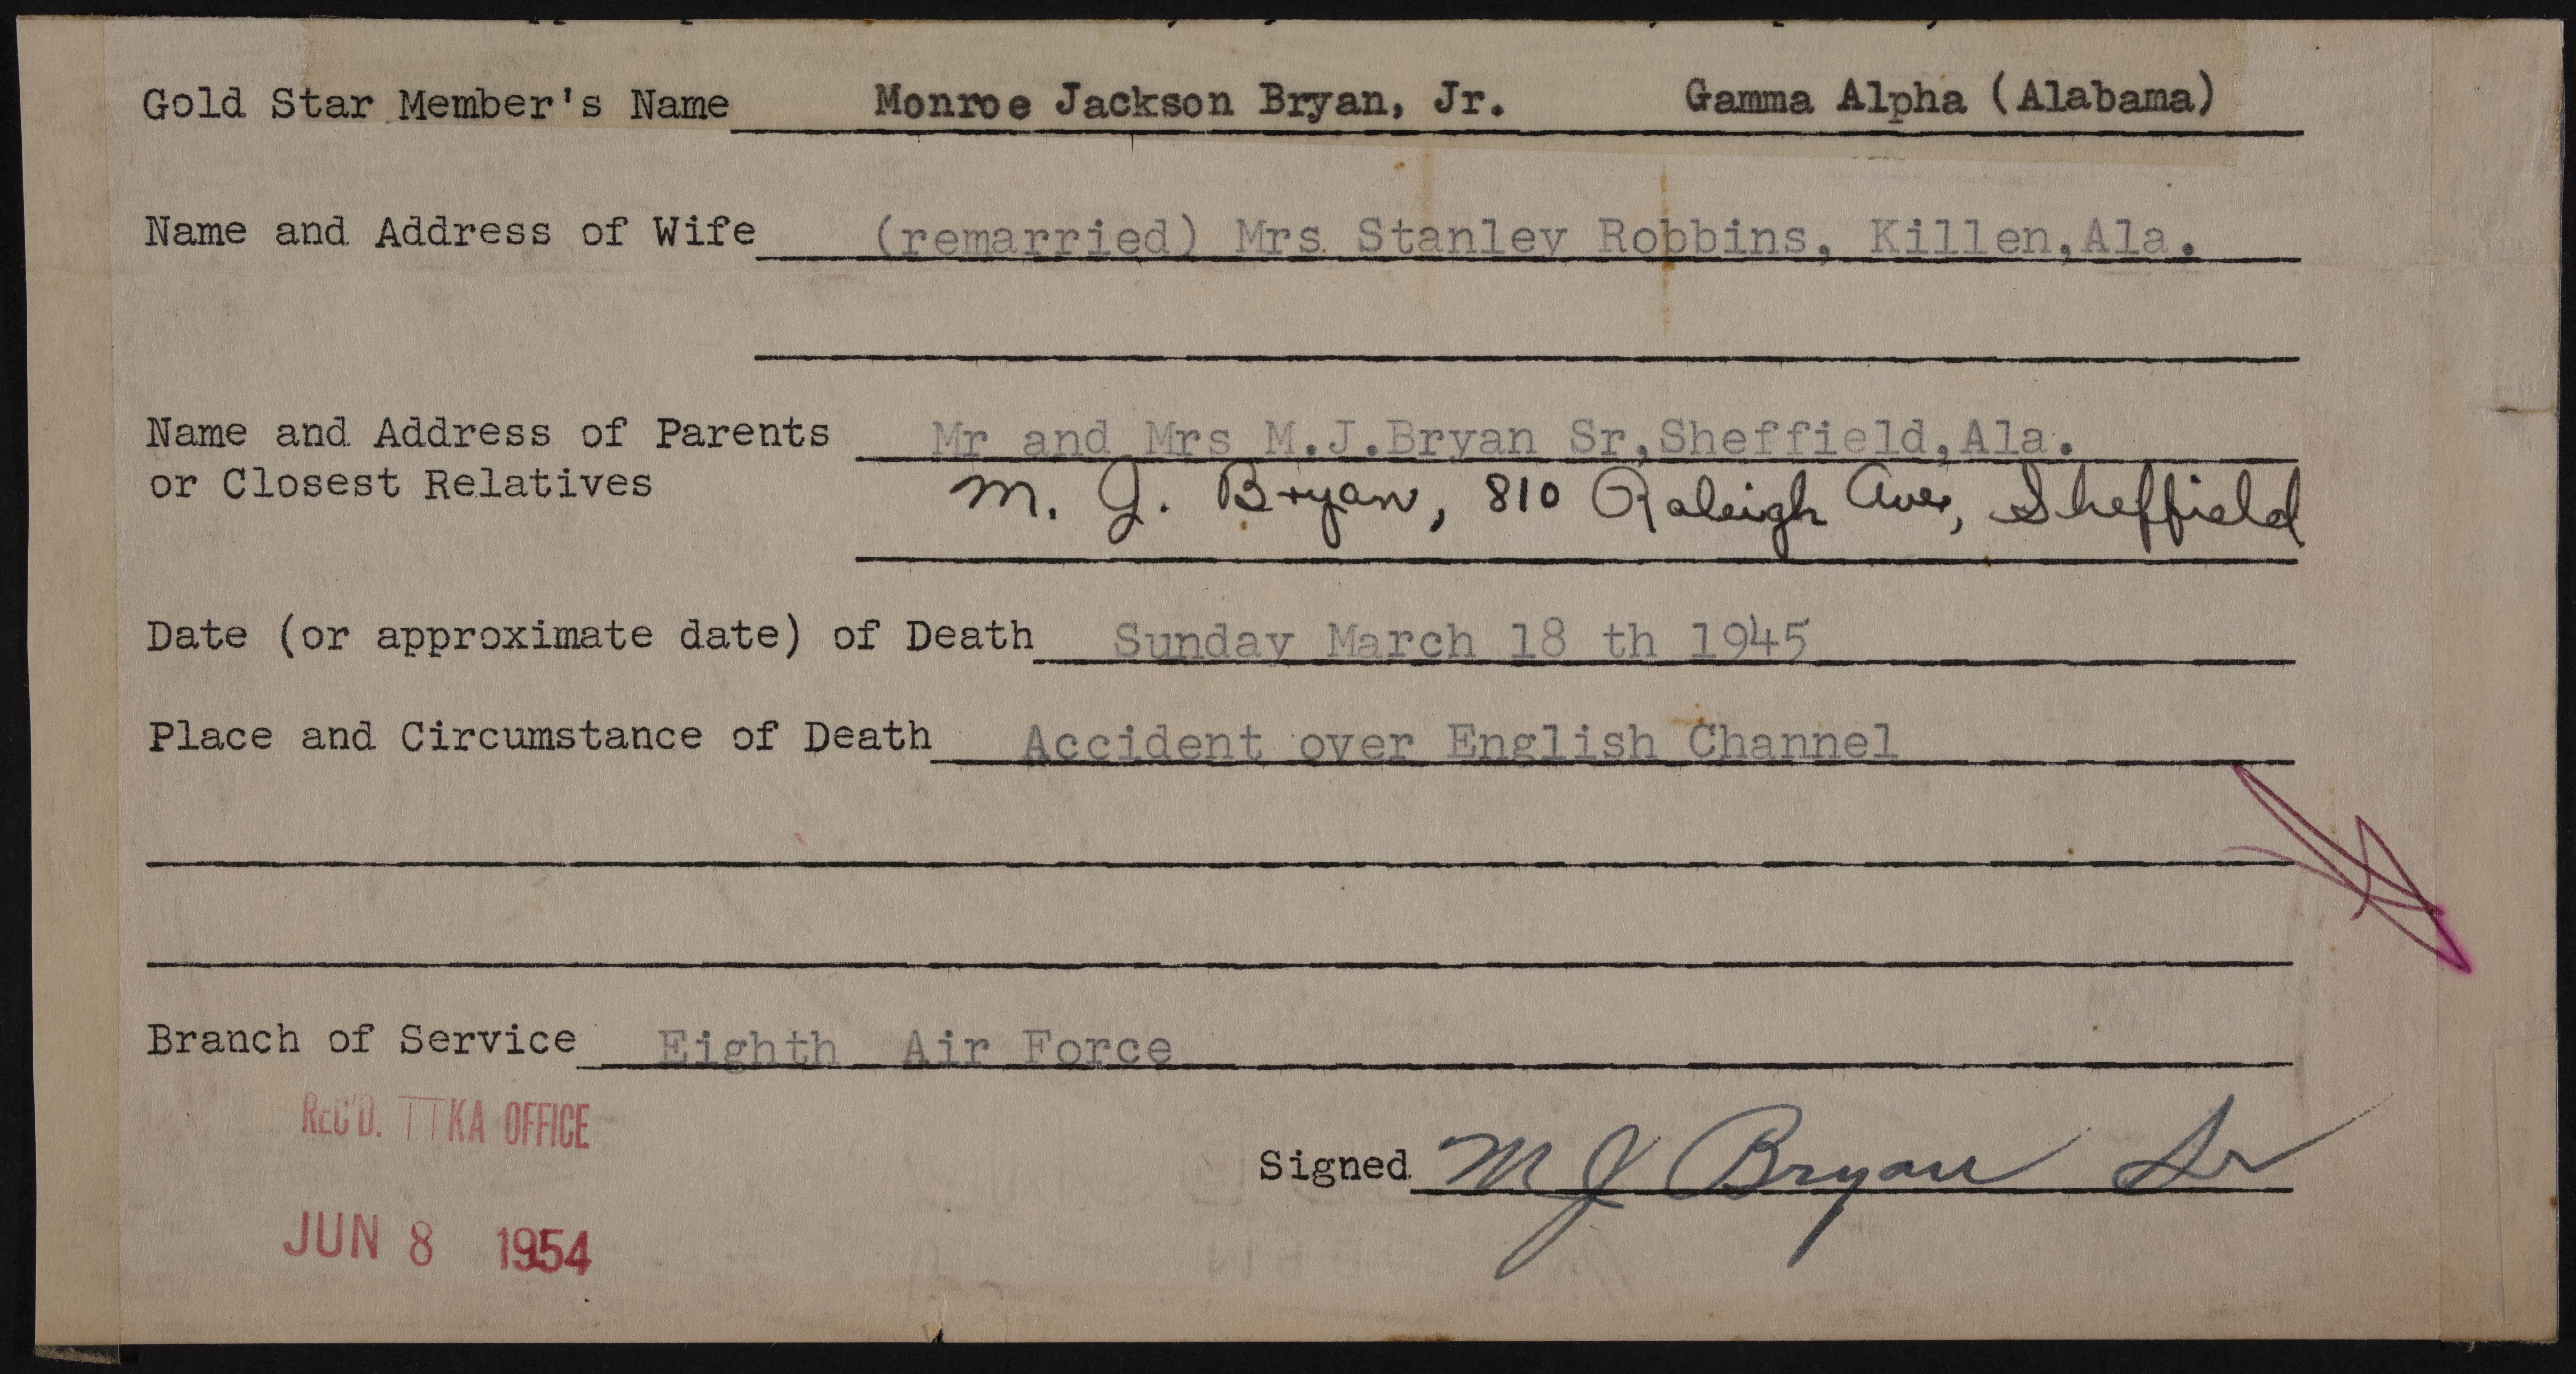 Gold Star Member's Name Monroe Jackson Bryan, Jr. Gamma Alpha (Alabama)
Name and Address of Wife (remarried) Mrs Stanley Robbins, Killen,Ala.
Name and Address of Parents Mr and Mrs M.J.Bryan Sr,Sheffield,Ala.
or Closest Relatives M. J. Bryan, 810 Raleigh Ave, Sheffield
Date (or approximate date) of Death Sunday March 18 th 1945
Place and Circumstance of Death Accident over English Channel
Branch of Service Eighth Air Force
REC'D. TTKA OFFICE
Signed M J Bryan Sr
JUN 8 1954